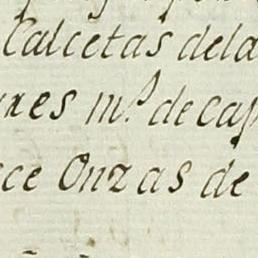 Calcetas dela
res m.^s de cap
ce Onzas de